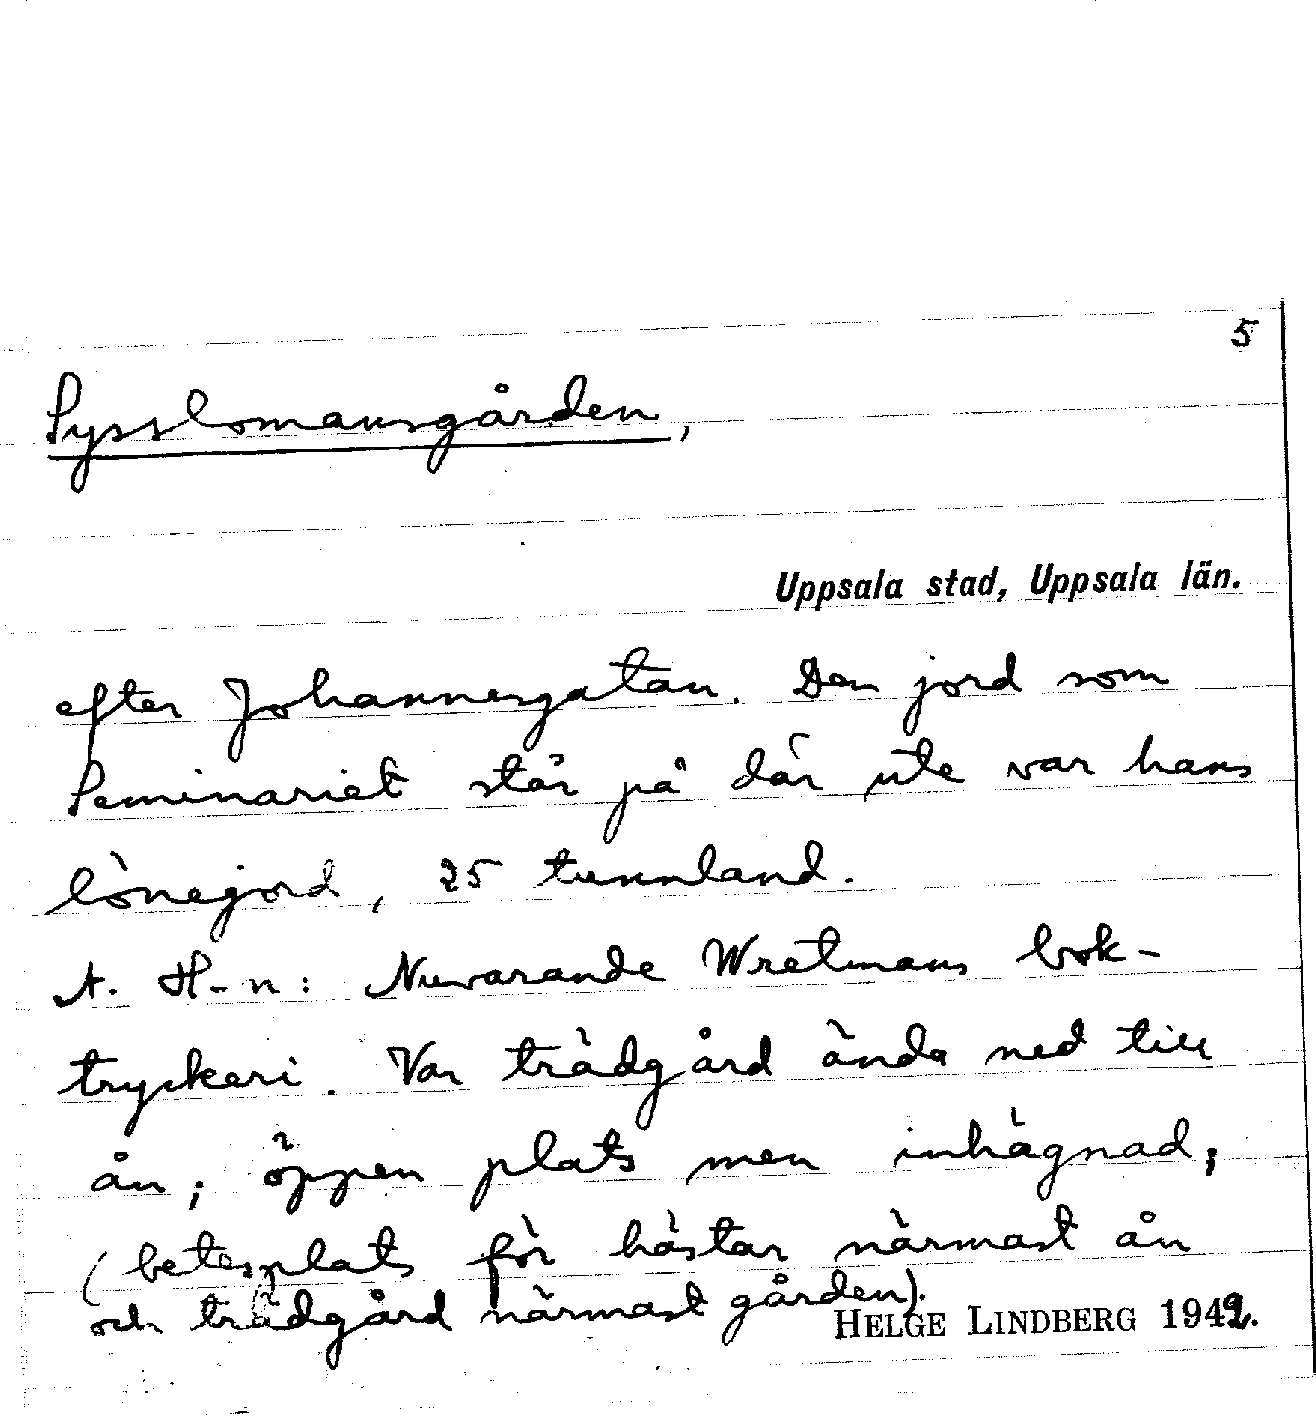 5
Sysslomansgården,
Uppsala stad, Uppsala län.
efter Johannesgatan. Den jord som
Seminariet står på där ute var hans
lönejord, 25 tunnland.
A. H-n: Nuvarande Wretmans bok-
tryckeri. Var trädgård ända ned till
ån; öppen plats men inhägnad;
(betesplats för hästar närmast ån
och trädgård närmast gården).
HELGE LINDBERG 1942.